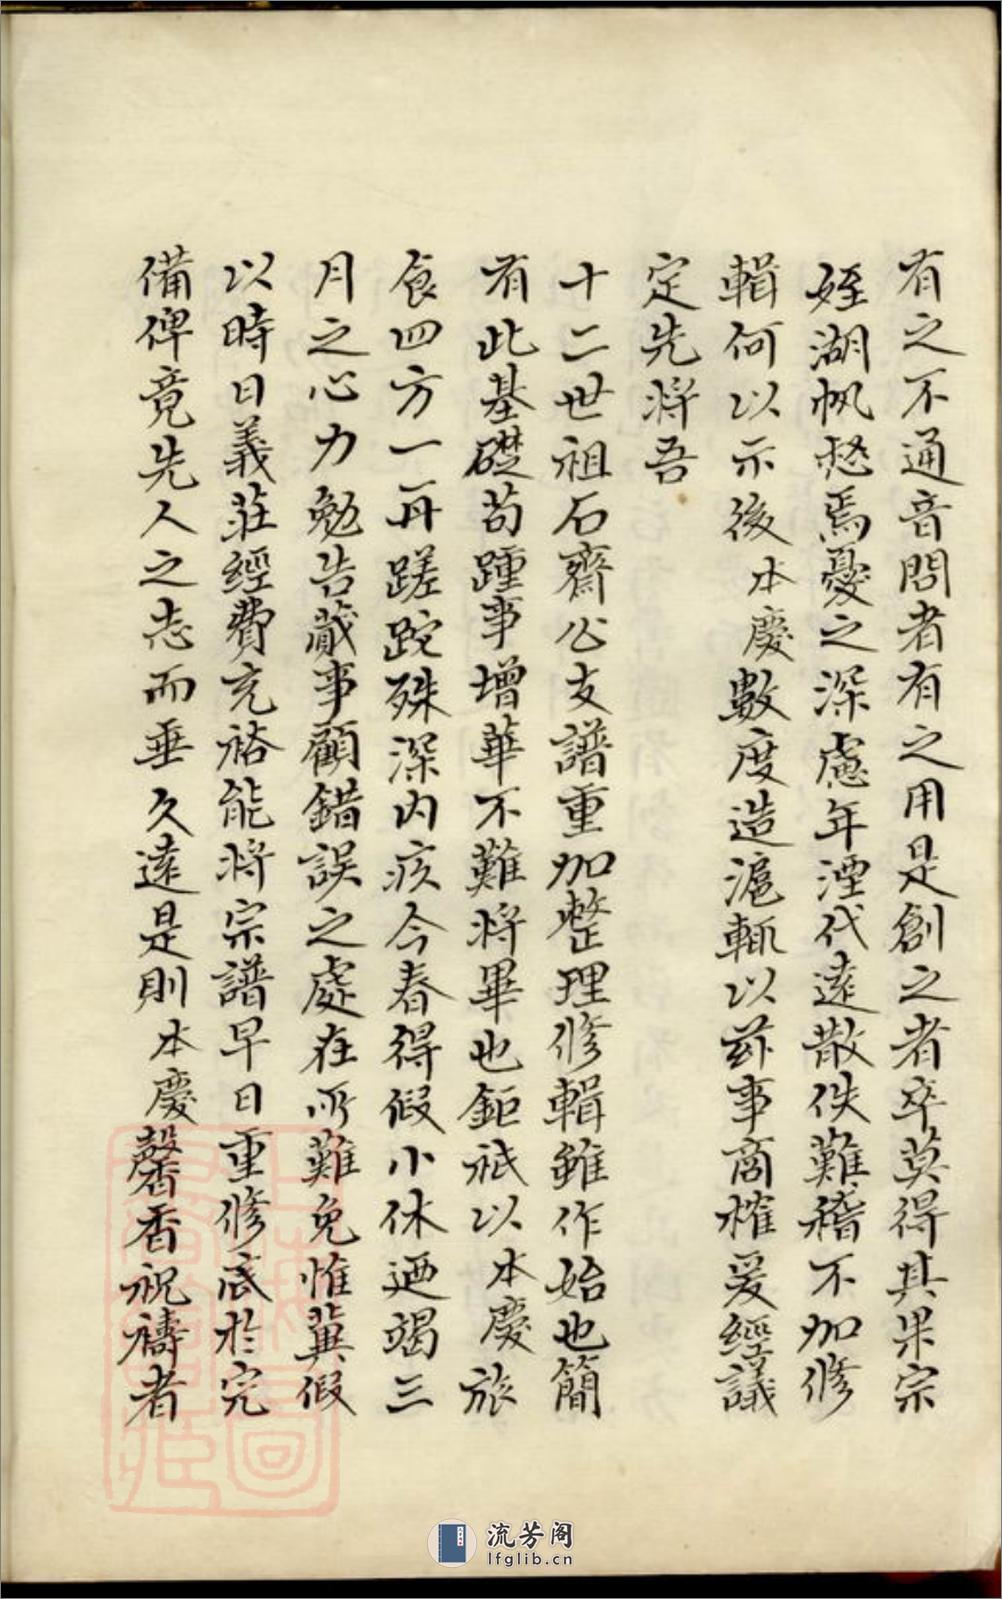 有之不通音問者有之用是創之者卒莫得其果宗
姪湖帆愁焉憂之深慮年湮代遠散佚難稽不加修
輯何以示後本慶數度造滬輒以茲事商榷爰經議
定先將吾
十二世祖石齋公支譜重加整理修輯雖作始也簡
有此基礎苟踵事增華不難將畢也鉅祇以本慶旅
食四方一再蹉跎殊深內疚今春得假小休迺竭三
月之心力勉告蕆事顧錯誤之處在所難免惟冀假
以時日義莊經費充裕能將宗譜早日重修底於完
備俾竟先人之志而垂久遠是則本慶馨香祝禱者
流芳阁
lfglib.cn